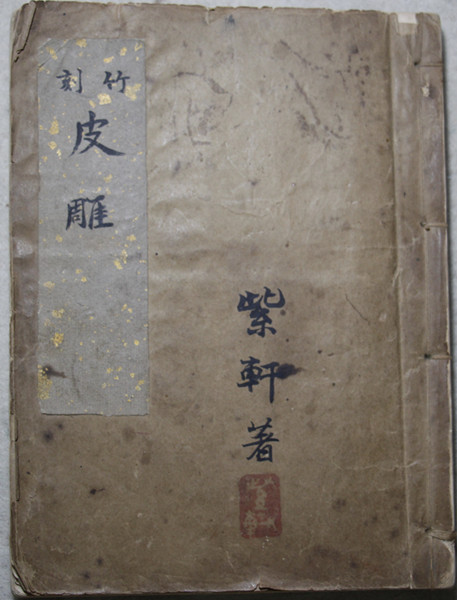 竹刻
皮雕
紫軒著